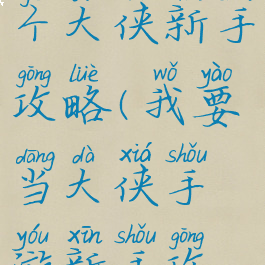 个大侠新手
gōng lüè wǒ yào
攻略(我要
dāng dà xiá shǒu
当大侠手
yóu xīn shǒu gōng
游新手攻